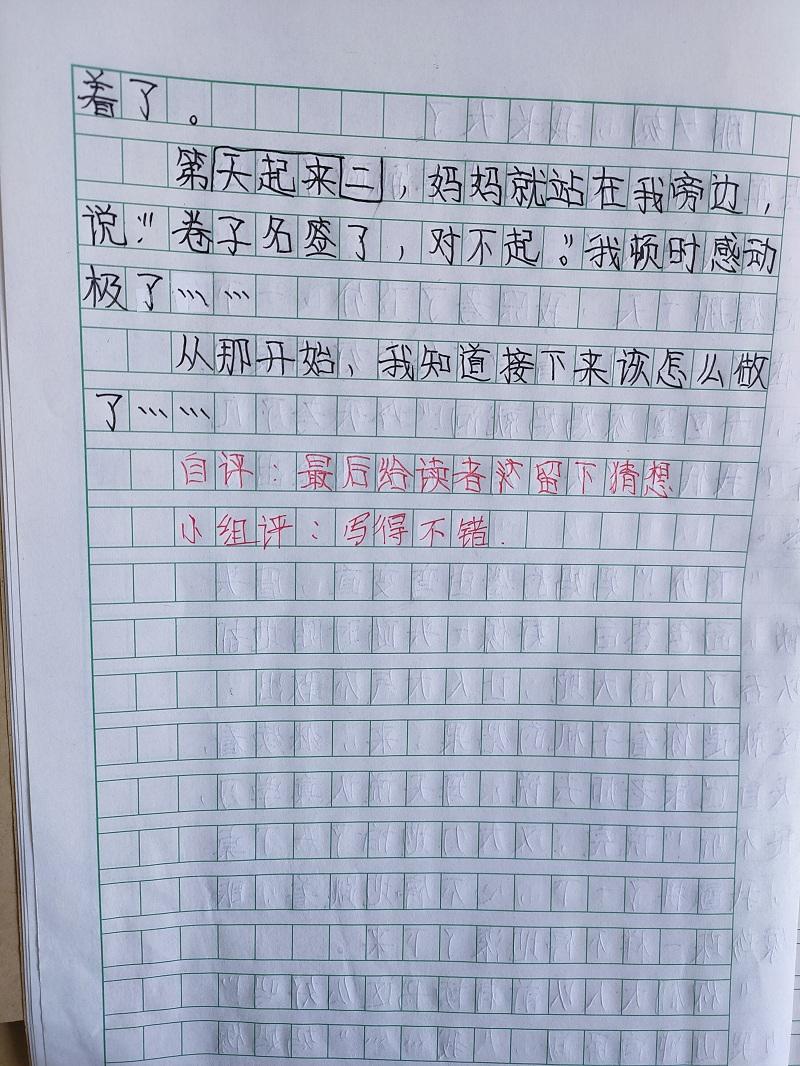 着了。
第天起来二，妈妈就站在我旁边，
说：“卷子名盛了，对不起。”我顿时感动
极了……
从那开始、我知道接下来该怎么做
了……
自评：最后给读者留下猜想
小组评：写得不错.